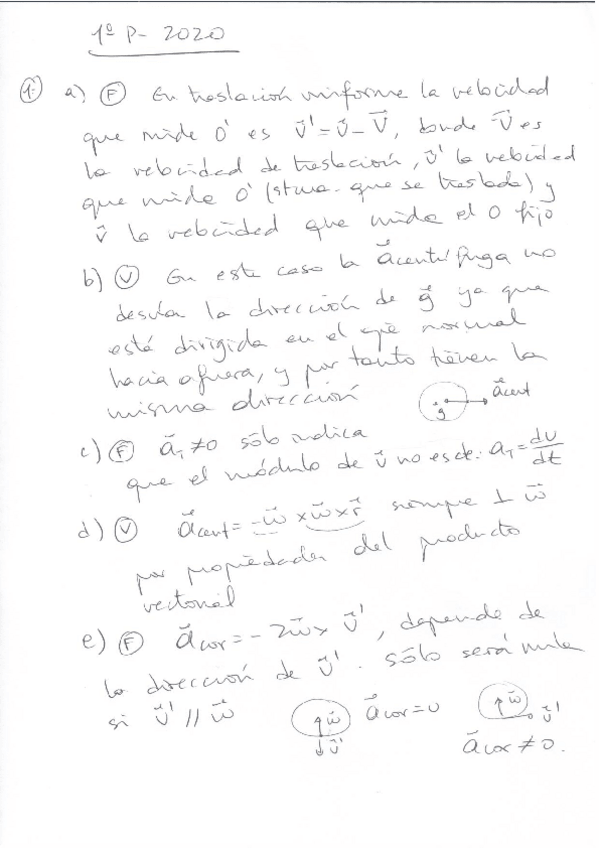 1º P- 2020
1: a) (F) En traslación uniforme la velocidad
que mide O' es v⃗' = v⃗ - V⃗, donde V⃗ es
la velocidad de traslación, v⃗' la velocidad
que mide O' (stma. que se traslada) y
v⃗ la velocidad que mide el O fijo
b) (V) En este caso la a⃗centrífuga no
desvía la dirección de g⃗ ya que
está dirigida en el eje normal
hacia afuera, y por tanto tienen la
misma dirección
g⃗ a⃗cent
c) (F) a⃗T ≠ 0 sólo indica
que el módulo de v⃗ no es cte. aT = dv/dt
d) (V) a⃗cent = -ω⃗ x ω⃗ x r⃗ siempre ⊥ ω⃗
por propiedades del producto
vectorial
e) (F) a⃗cor = -2ω⃗ x v⃗', depende de
la dirección de v⃗'. sólo será nula
si v⃗' // ω⃗
ω⃗ v⃗' a⃗cor = 0 ω⃗ v⃗'
a⃗cor ≠ 0.